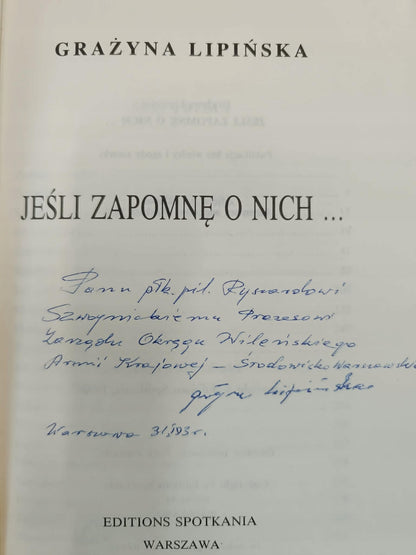 GRAŻYNA LIPIŃSKA
JEŚLI ZAPOMNĘ O NICH ...
Panu płk. pil. Ryszardowi
Szwoynickiemu Prezesowi
Zarządu Okręgu Wileńskiego
Armii Krajowej – Środowisko Warszawskie
Lipińska
Warszawa
EDITIONS SPOTKANIA
WARSZAWA